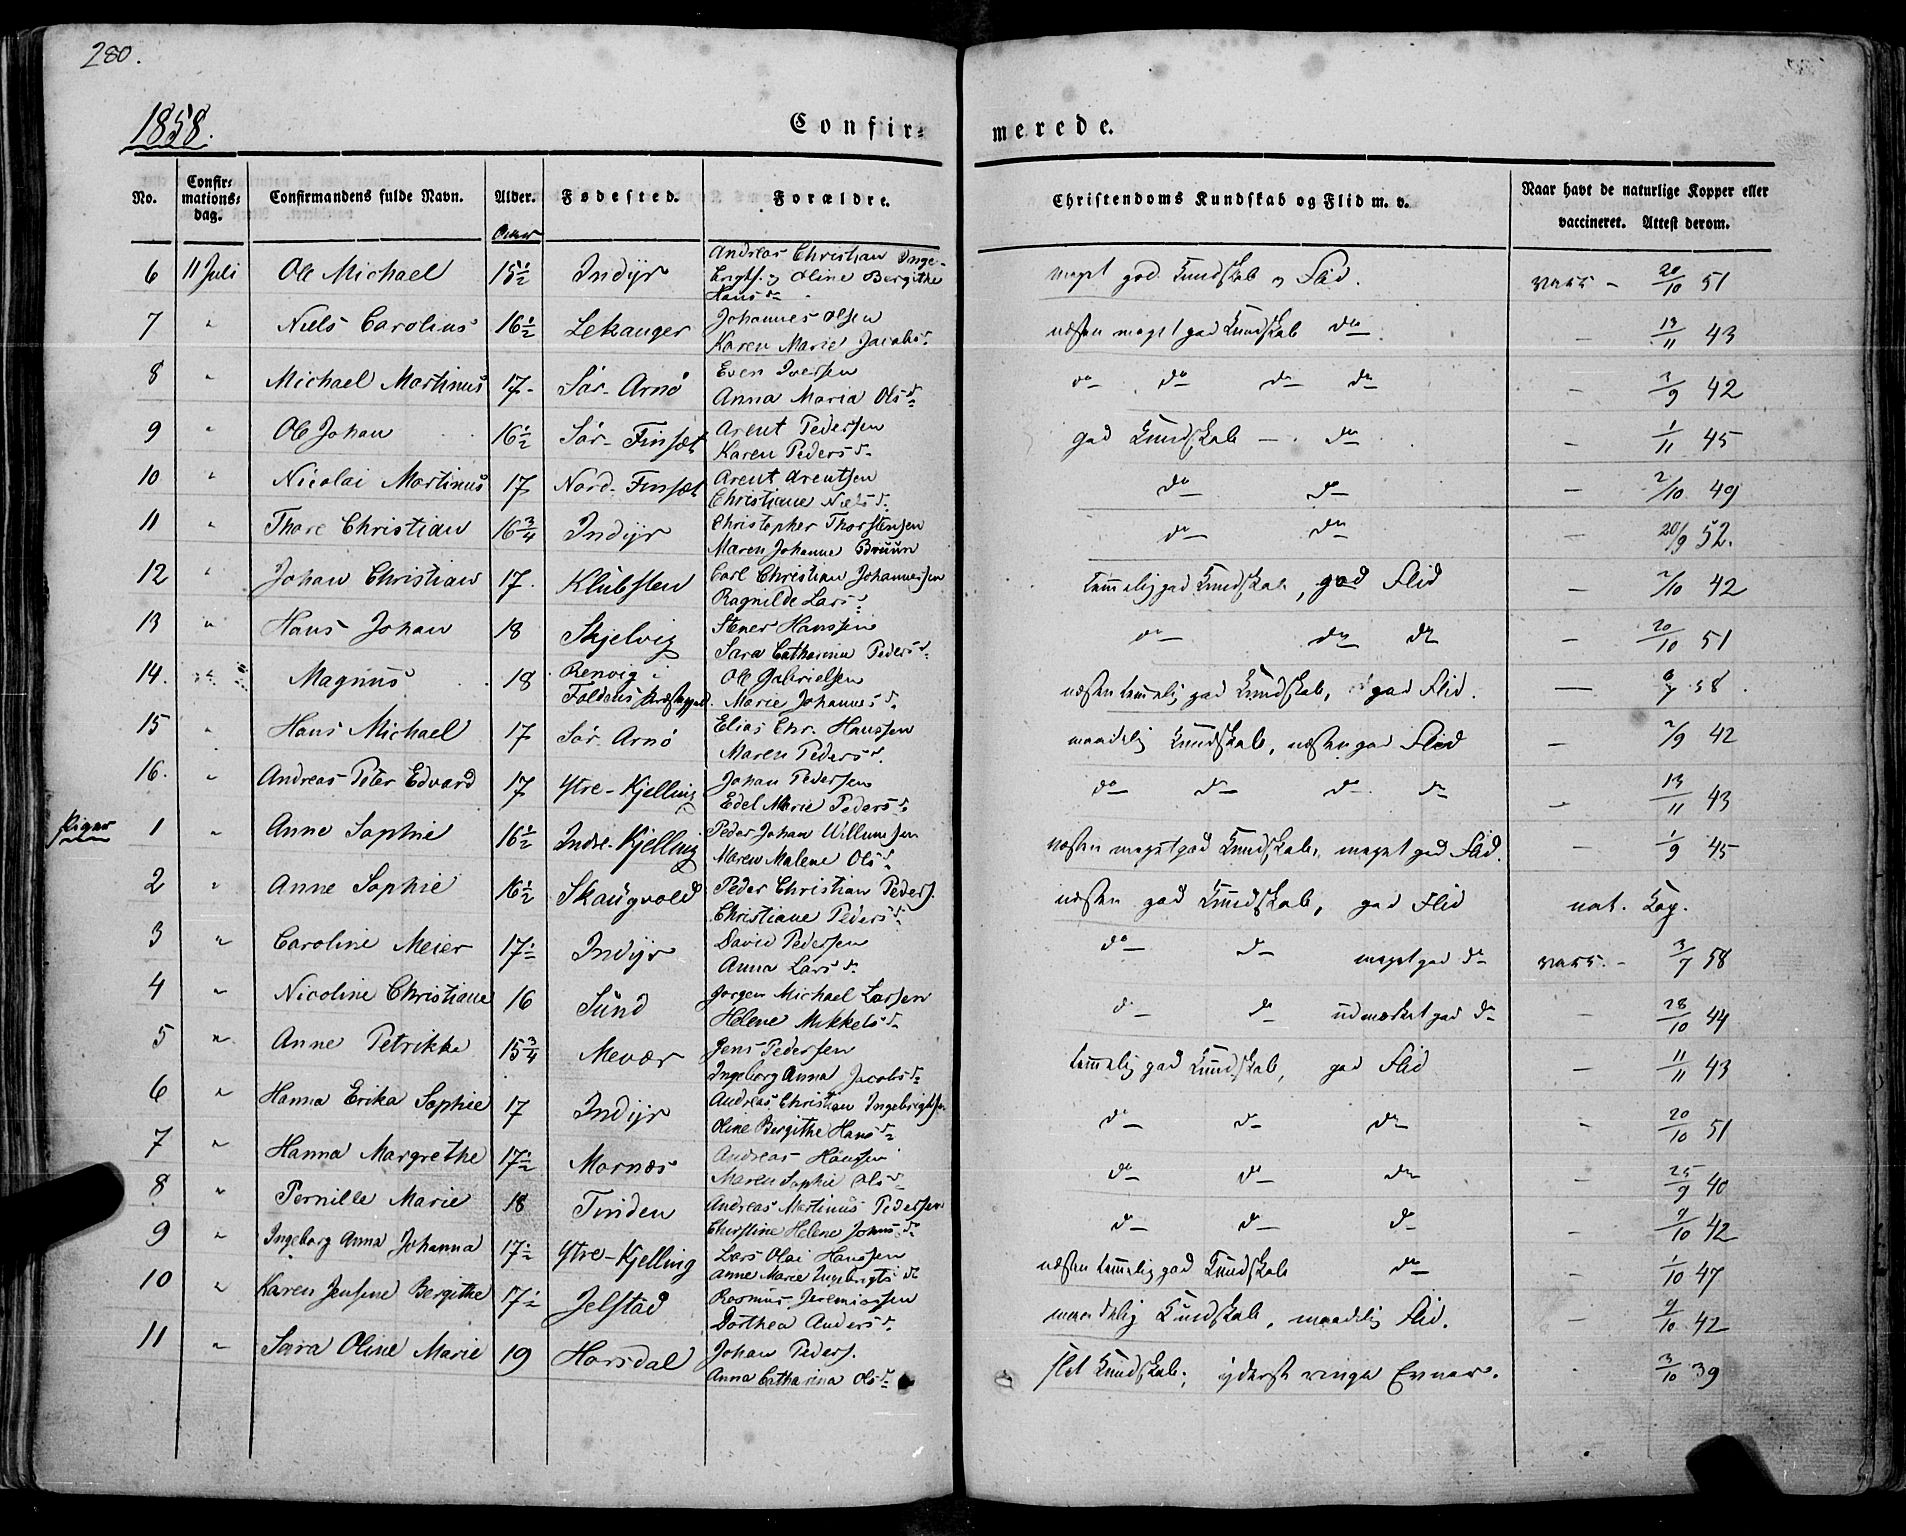 280.
1858.
Confir=
merede.
No.
Confir=
mations=
dag.
Confirmandens fulde Navn.
Alder.
Fødested.
Forældre.
Christendoms Kundskab og Flid m. v.
Naar havt de naturlige Kopper eller
vaccineret. Attest derom.
6 11 Juli Ole Michael 15½ Indyr Andreas Christian Inge-
brigts. og Oline Bergithe
Hans d. meget god Kundskab og Flid. vacc - 20/10 51
7 " Niels Carolius 16½ Lekanger Johannes Olsen
Karen Marie Jacobsd. næsten meget god Kundskab do - 13/11 43
8 " Michael Martinus 17- Sør-Arnø Even Iversen
Anna Maria Olsd. do do do do - 3/9 42
9 " Ole Johan 16½ Sør-Finset Arent Pedersen
Karen Pedersd. god Kundskab - do - 1/11 45
10 " Nicolai Martinus 17 Nord-Finset Arent Arentsen
Christiane Nielsd. do do - 2/10 49
11 " Thore Christian 16¾ Indyr Christopher Thorstensen
Maren Johanne Bruun do do - 20/9 52.
12 " Johan Christian 17. Klubsten Carl Christian Johannessen
Ragnilde Larsd. temmelig god Kundskab, god Flid - 2/10 42
13 " Hans Johan 18 Skjelvig Stener Hanssen
Sara Catharina Pedersd. do do do - 20/10 51
14. " Magnus 18 Renvig i
Foldens Præstegjeld. Ole Gabrielsen
Marie Johannesd. næsten temmelig god Kundskab, god Flid. - 6/7 58
15 " Hans Michael 17 Sør-Arnø Elias Chr. Hanssen
Maren Pedersd. maadelig Kundskab, næsten god Flid - 2/9 42
16. " Andreas Peter Edvard 17 Ytre-Kjelling Johan Pedersen
Edel Marie Pedersd. do do do do - 13/11 43
Piger 1 " Anne Sophie 16½ Indre-Kjelling Peder Johan Willumsen
Maren Malene Olsd. næsten meget god Kundskab, meget god Flid. - 1/9 45
2 " Anne Sophie 16½ Skaugvold Peder Christian Peders.
Christiane Pedersd. næsten god Kundskab, god Flid nat. Kop.
3 " Caroline Meier 17½ Indyr David Pedersen
Anna Larsd. do do meget god do vacc. - 3/7 58
4 " Nicoline Christiane 16 Sund Jørgen Michael Larsen
Helene Mikkelsd. do do udmærket god do - 28/10 44
5 " Anne Petrikke 15¾ Mevær Jens Pedersen
Ingeborg Anna Jacobsd. temmelig god Kundskab, god Flid - 11/11 43
6 " Hanna Erika Sophie 17 Indyr Andreas Christian Ingebrightsen
Oline Bergithe Hansd. do do do - 20/10 51
7 " Hanna Margrethe 17½ Mornæs Andreas Hanssen
Maren Sophie Olsd. do do do - 25/9 40
8 " Pernille Marie 18 Tinden Andreas Martinus Pedersen
Christine Helene Johnsd. do do do - 9/10 42
9 " Ingeborg Anna Johanna 17½ Ytre-Kjelling Lars Olai Hanssen
Anne Marie Ingebrigtsd. næsten temmelig god Kundskab do - 1/10 47
10 " Karen Jensine Bergithe 17½ Jelstad Rasmus Jeremiassen
Dorthea Andersd. maadelig Kundskab, maadelig Flid. - 9/10 42
11 " Sara Oline Marie 19 Horsdal Johan Peders.
Anna Catharina Olsd. slet Kundskab, yderst ringe Evner. - 3/10 39